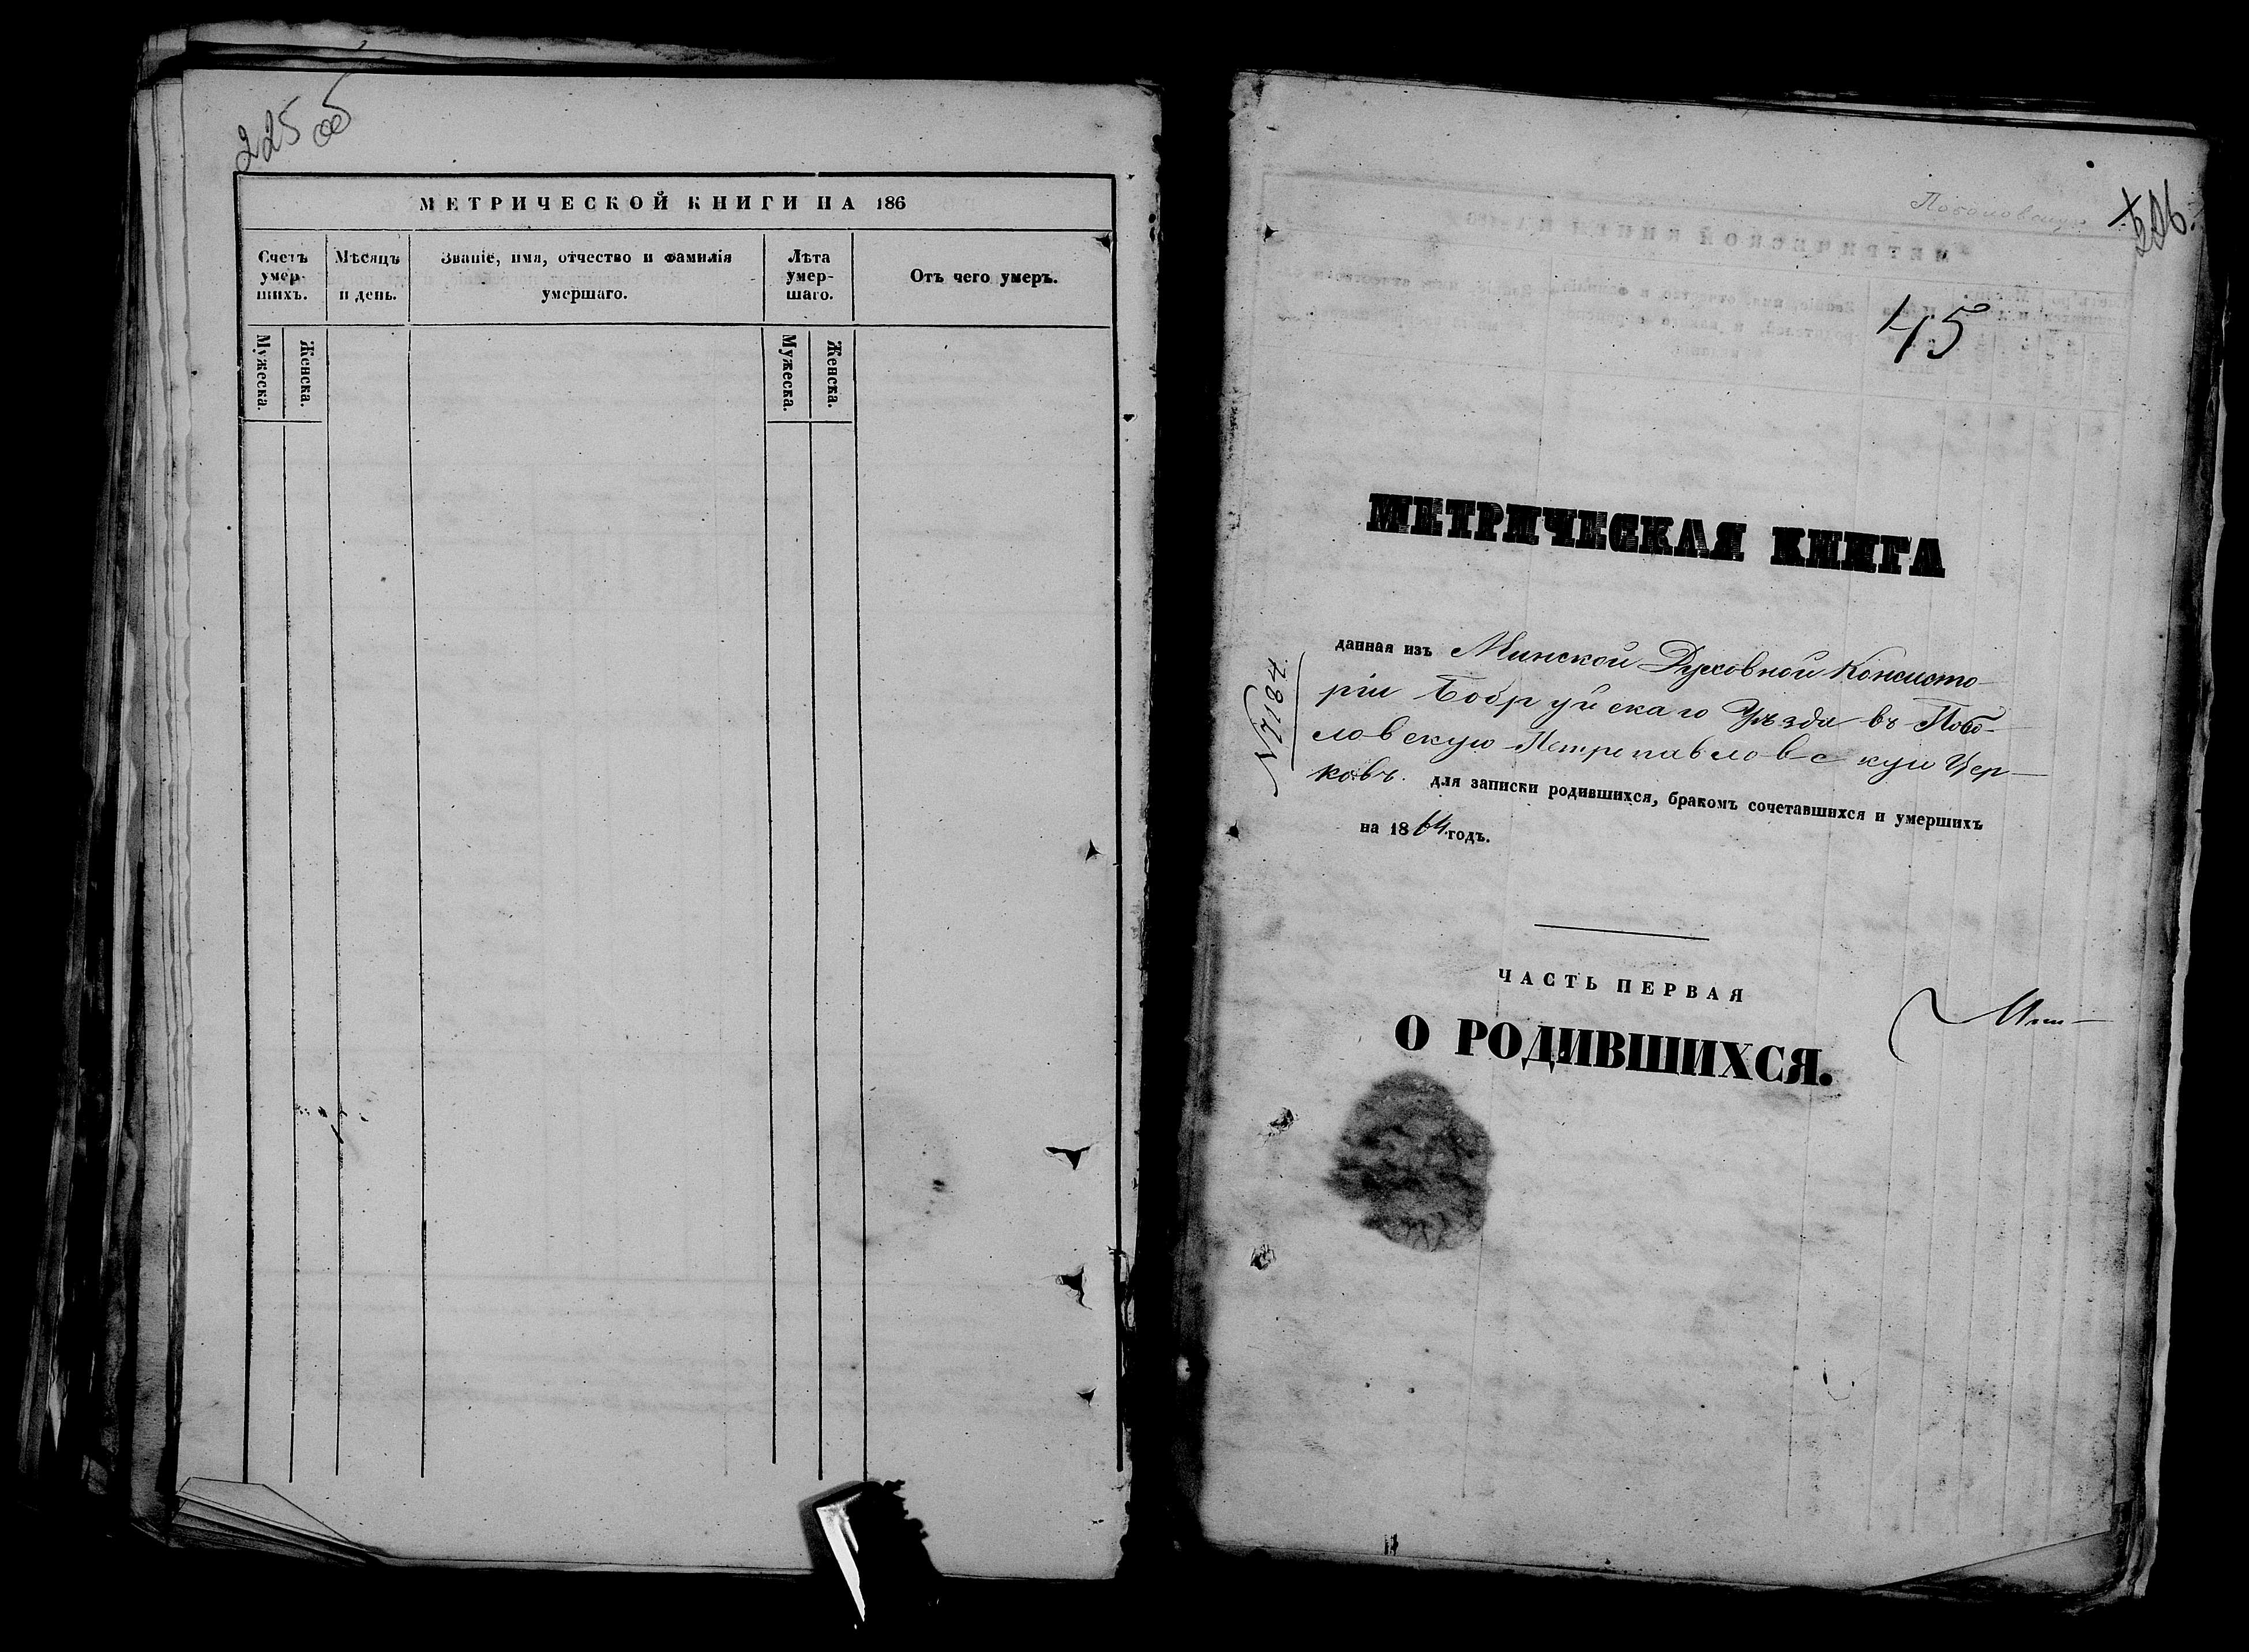 225 об
МЕТРИЧЕСКОЙ КНИГИ НА 186
Счетъ умер- шихъ.
Мѣсяцъ и день.
Званіе, имя, отчество и фамилія умершаго.
Лѣта умер- шаго.
Отъ чего умеръ.
Мужеска.
Женска.
Мужеска.
Женска.
226.
45
МЕТРИЧЕСКАЯ КНИГА
данная изъ Минской Духовной Консисто-
ріи Бобруйскаго Уѣзда въ Побо-
ловскую Петропавловскую Цер-
ковь. для записки родившихся, бракомъ сочетавшихся и умершихъ
на 1864 годъ.
N 7184
ЧАСТЬ ПЕРВАЯ
О РОДИВШИХСЯ.